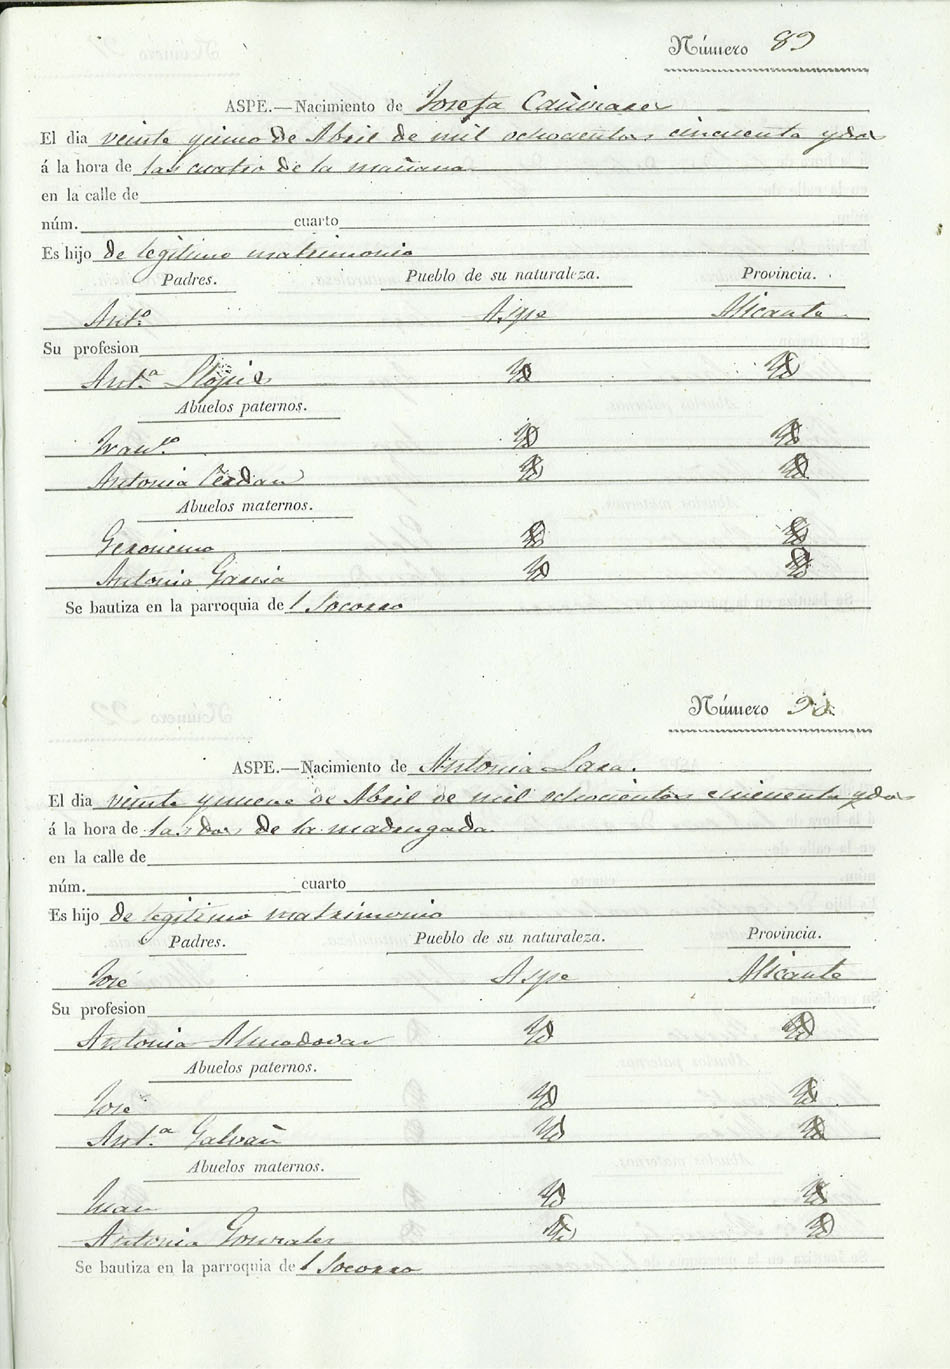 Número 89
ASPE.—Nacimiento de Josefa Cañizares
El dia veinte y uno de Abril de mil ochocientos cincuenta y dos
á la hora de las cuatro de la mañana
en la calle de
núm. cuarto
Es hijo de legitimo matrimonio
Padres. Pueblo de su naturaleza. Provincia.
Ant.º Aspe Alicante
Su profesion
Ant.ª Llopis Yd Yd
Abuelos paternos.
Fran.co Yd Yd
Antonia Cerdan Yd Yd
Abuelos maternos.
Geronimo Yd Yd
Antonia Garcia Yd Yd
Se bautiza en la parroquia de l Socorro
Número 90
ASPE.—Nacimiento de Antonia Lara.
El dia veinte y nueve de Abril de mil ochocientos cincuenta y dos
á la hora de las dos de la madrugada
en la calle de
núm. cuarto
Es hijo de legitimo matrimonio
Padres. Pueblo de su naturaleza. Provincia.
José Aspe Alicante
Su profesion
Antonia Almodovar Yd Yd
Abuelos paternos.
José Yd Yd
Ant.ª Galvañ Yd Yd
Abuelos maternos.
Juan Yd Yd
Antonia Gonzales Yd Yd
Se bautiza en la parroquia de l Socorro